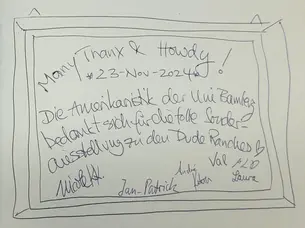 Many Thanx & Howdy !
*23-Nov-2024*
Die Amerikanistik der Uni Bamberg
bedankt sich für die tolle Sonder-
ausstellung zu den Dude Ranches
Val
Nicole K.
Jan-Patrick
Laura